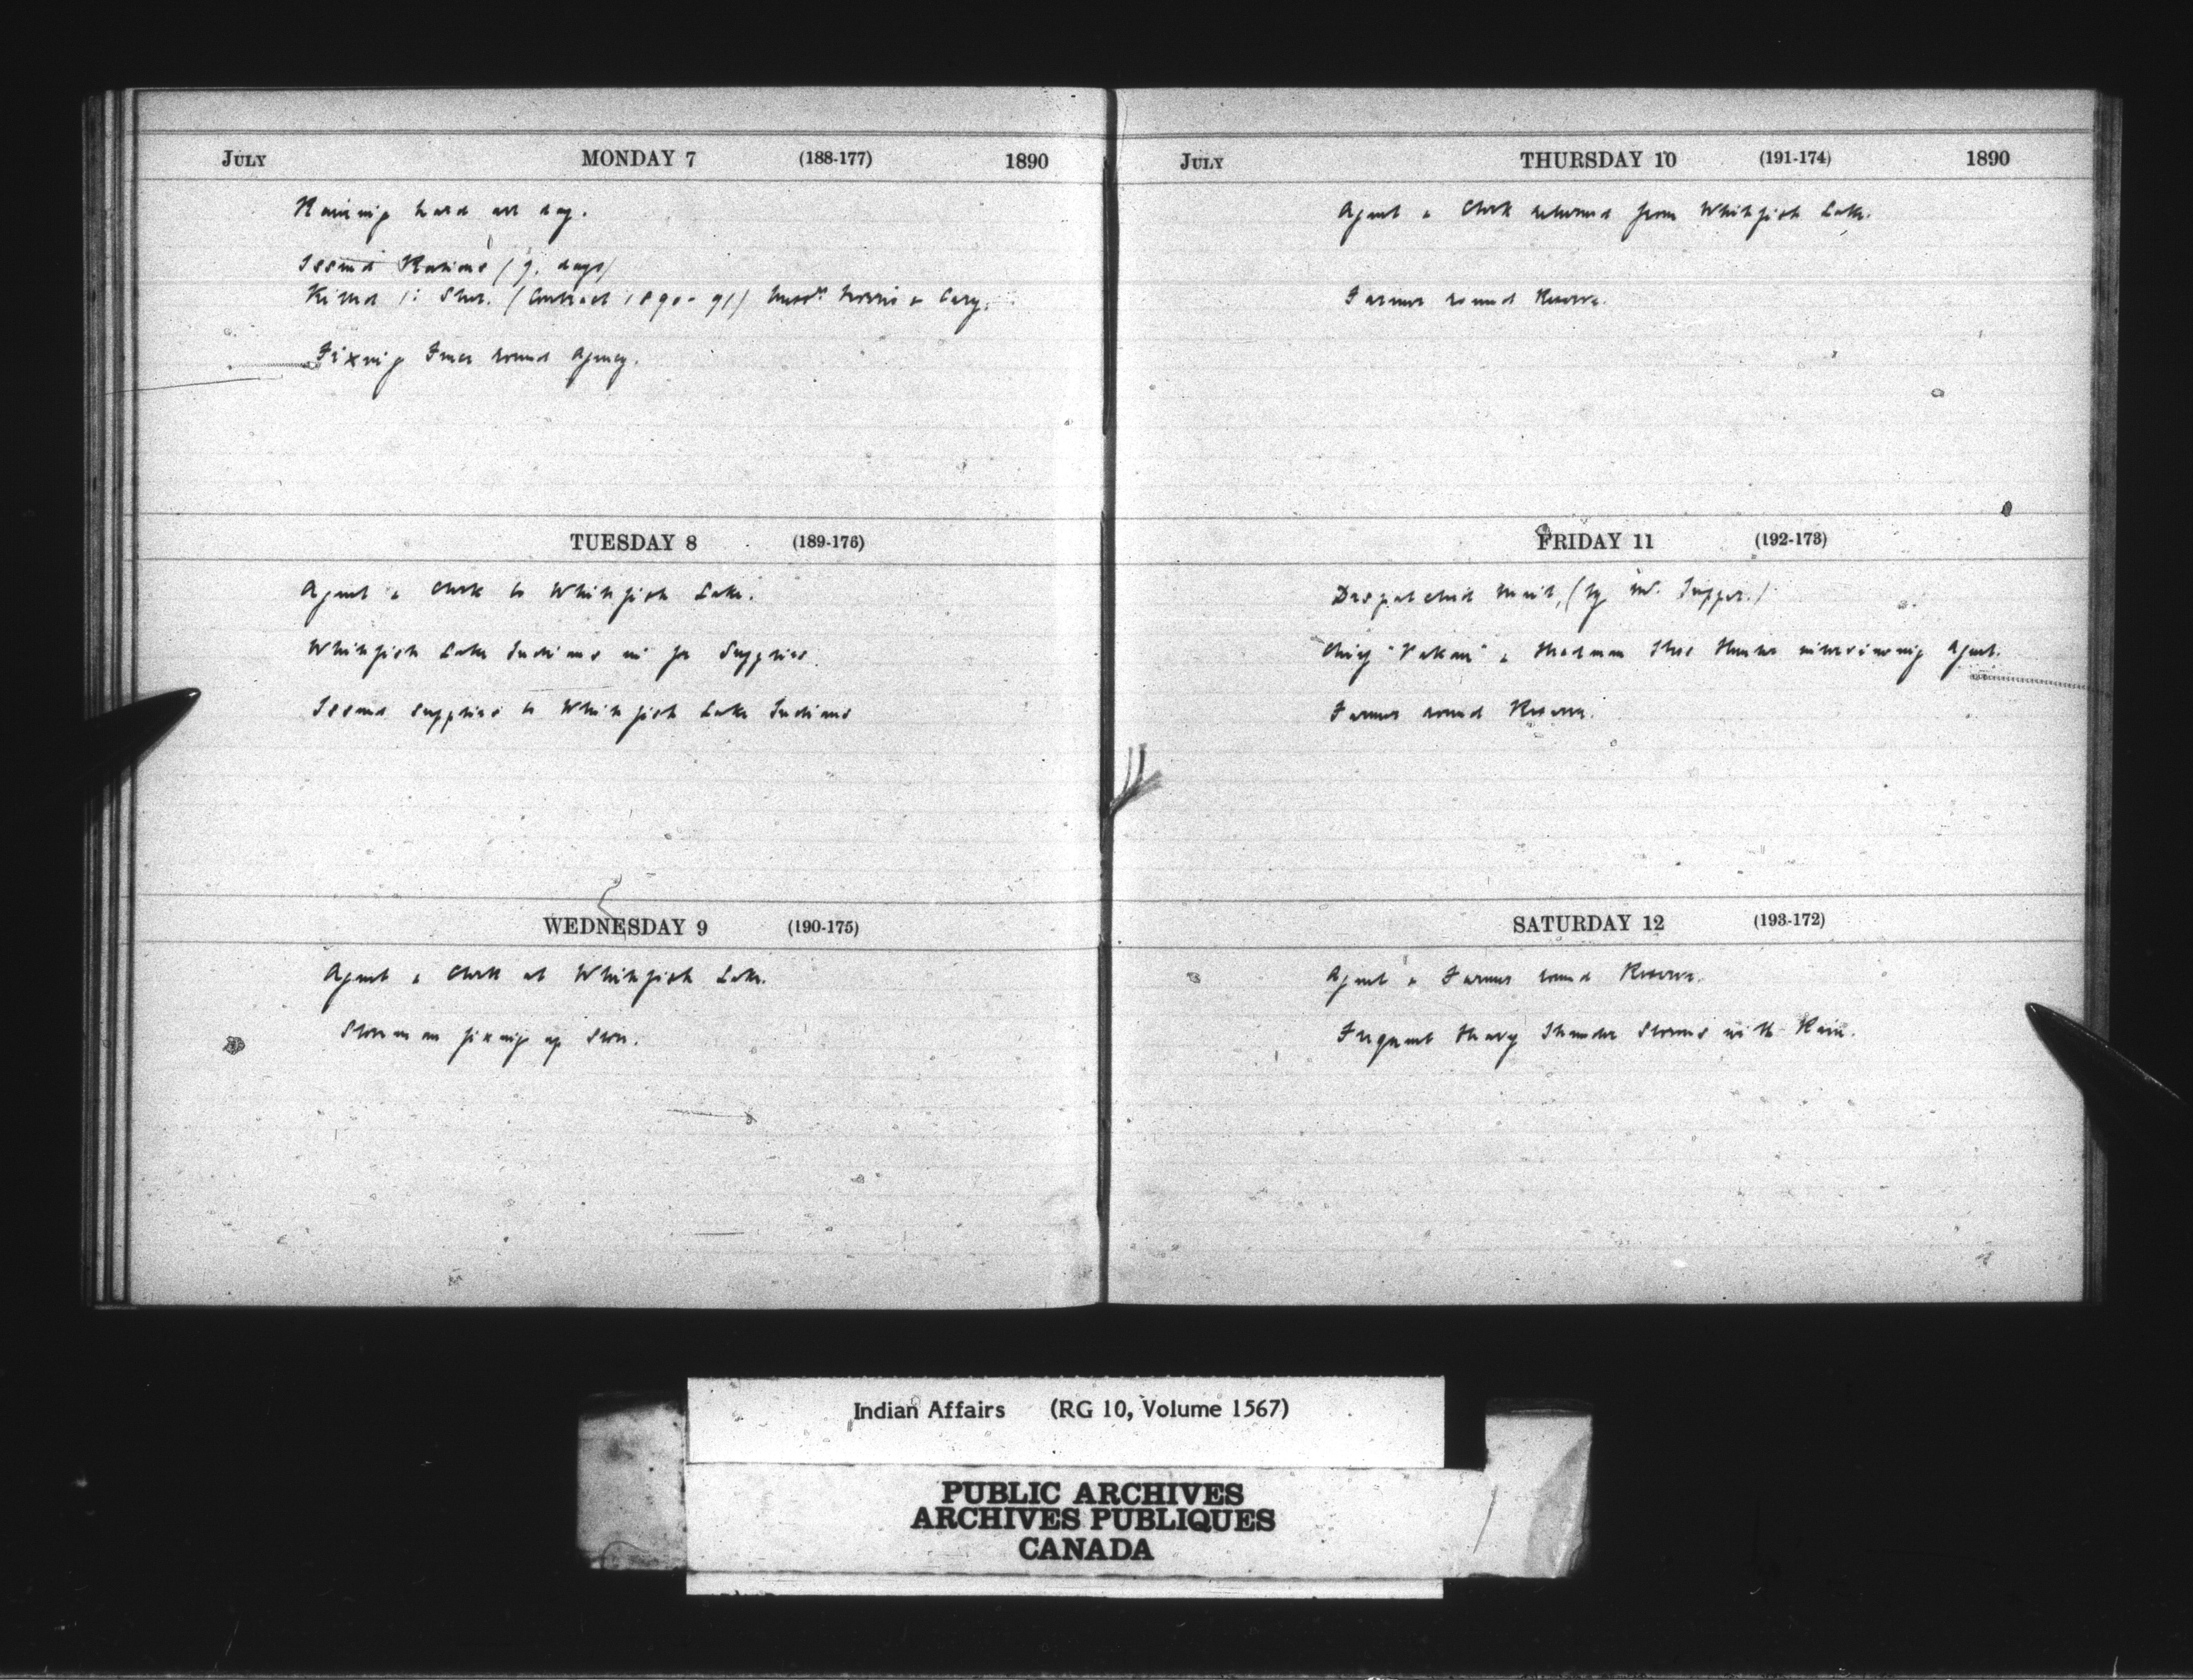 JULY MONDAY 7 (188-177) 1890
Raining hard all day.
Issued Rations (7. days)
Killed 1: Steer. (Contract 1890-91) Messrs Norris & Carey.
Fixing Fence round Agency.
TUESDAY 8 (189-176)
Agent & Clerk to Whitefish Lake.
Whitefish Lake Indians in for Supplies.
Issued supplies to Whitefish Lake Indians
WEDNESDAY 9 (190-175)
Agent & Clerk at Whitefish Lake.
Storeman fixing up Store.
JULY THURSDAY 10 (191-174) 1890
Agent & Clerk returned from Whitefish Lake.
Farmer round Reserve.
FRIDAY 11 (192-173)
Despatched Mail, (by
Chief "Pakan" & Headman Hunter interviewing Agent.
Farmer round Reserve.
SATURDAY 12 (193-172)
Agent & Farmer round Reserve.
Frequent Heavy Thunder Storms with Rain.
Indian Affairs (RG 10, Volume 1567)
PUBLIC ARCHIVES
ARCHIVES PUBLIQUES
CANADA